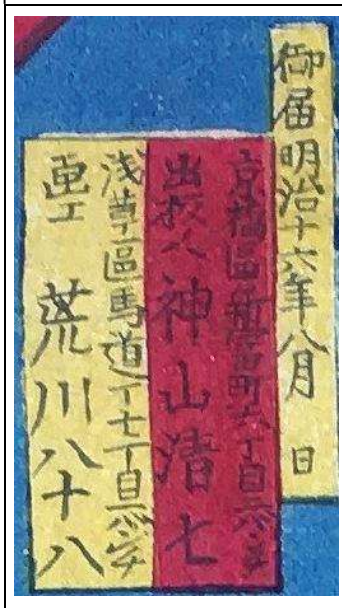 御届明治十六年八月 日
京橋區新富町六丁目
出板人 神山清七
浅草區馬道丁七丁目
画工 荒川八十八